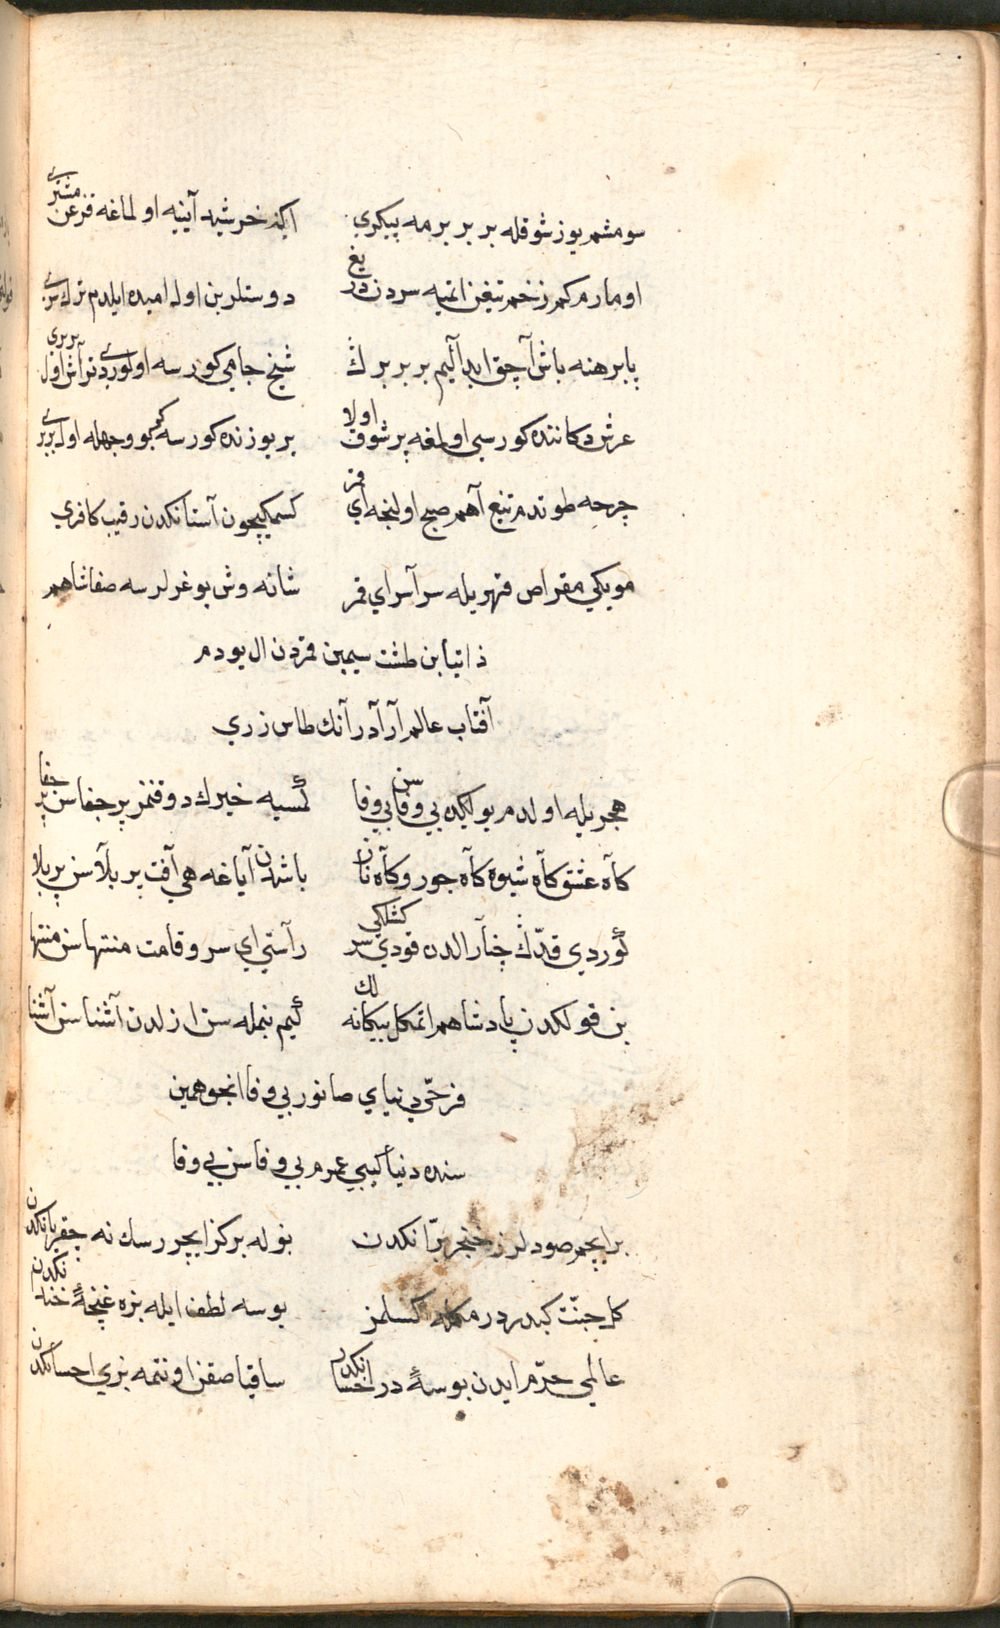 سومشم یوز شوقله بر بر برمه پیكری ایكه خرشید آینه اولماغه قزعن مشتری
اومارم كم زخم تیغن اتمیه سردن دریغ دوستلر بن اول امیده ایلدم ترك سری
پابرهنه باش آچق ابدالیم بر بر برڭ شیخ جامی كورسه اولوردی تراش اول بربری
عرش دكاننده كورسی اولمغه پر شوق اولا بر یوزنده كورسه كم بو وجهله اول بربری
چرحه طوتدم تیغ آهم صبح اولنجه ای قمر كسمكیچون آستانكدن رقیب كافری
مویكی مقراض قهریله سراسر ای قمر شانه وش بوغرلرسه صفا شاهم
ذاتیا بن طشت سیمین قمردن ال یودم
آفتاب عالم آرادر آنك طاس زری
هجریله اولدم یولیكده بی وفا بی وفا سن كمسیه خیرك دوقنمز پر جفا سن پر جفا
كاه عشق كاه شیوه كاه جور وكاه ناز باشدن آیاغه هی آفت پر بلا سن پر بلا
كوردی قدّڭ چنار الدن قودی سركشلكی راستی ای سرو قامت منتها سن منتها
بن قولكدن پادشاهم اتمكل بیكانه لك كیم بنمله سن ازلدن آشنا سن آشنا
فرخّی دنیای صانور بی وفا انجو همین
سنده دنیا كیبی عمرم بی وفا سن بی وفا
بر ایچم صودلرز خنجر برّانكدن نوله بر كز ایچورسك نه چقر یانكدن
كل جنّت كبدر در مكله اكسلمز بوسه لطف ایله بزه غنچهٔ خندانكدن
عالمی خرّم ایدن بوسهٔ در احسانكدن ساقیا صقن اونتمه بزی احسانكدن